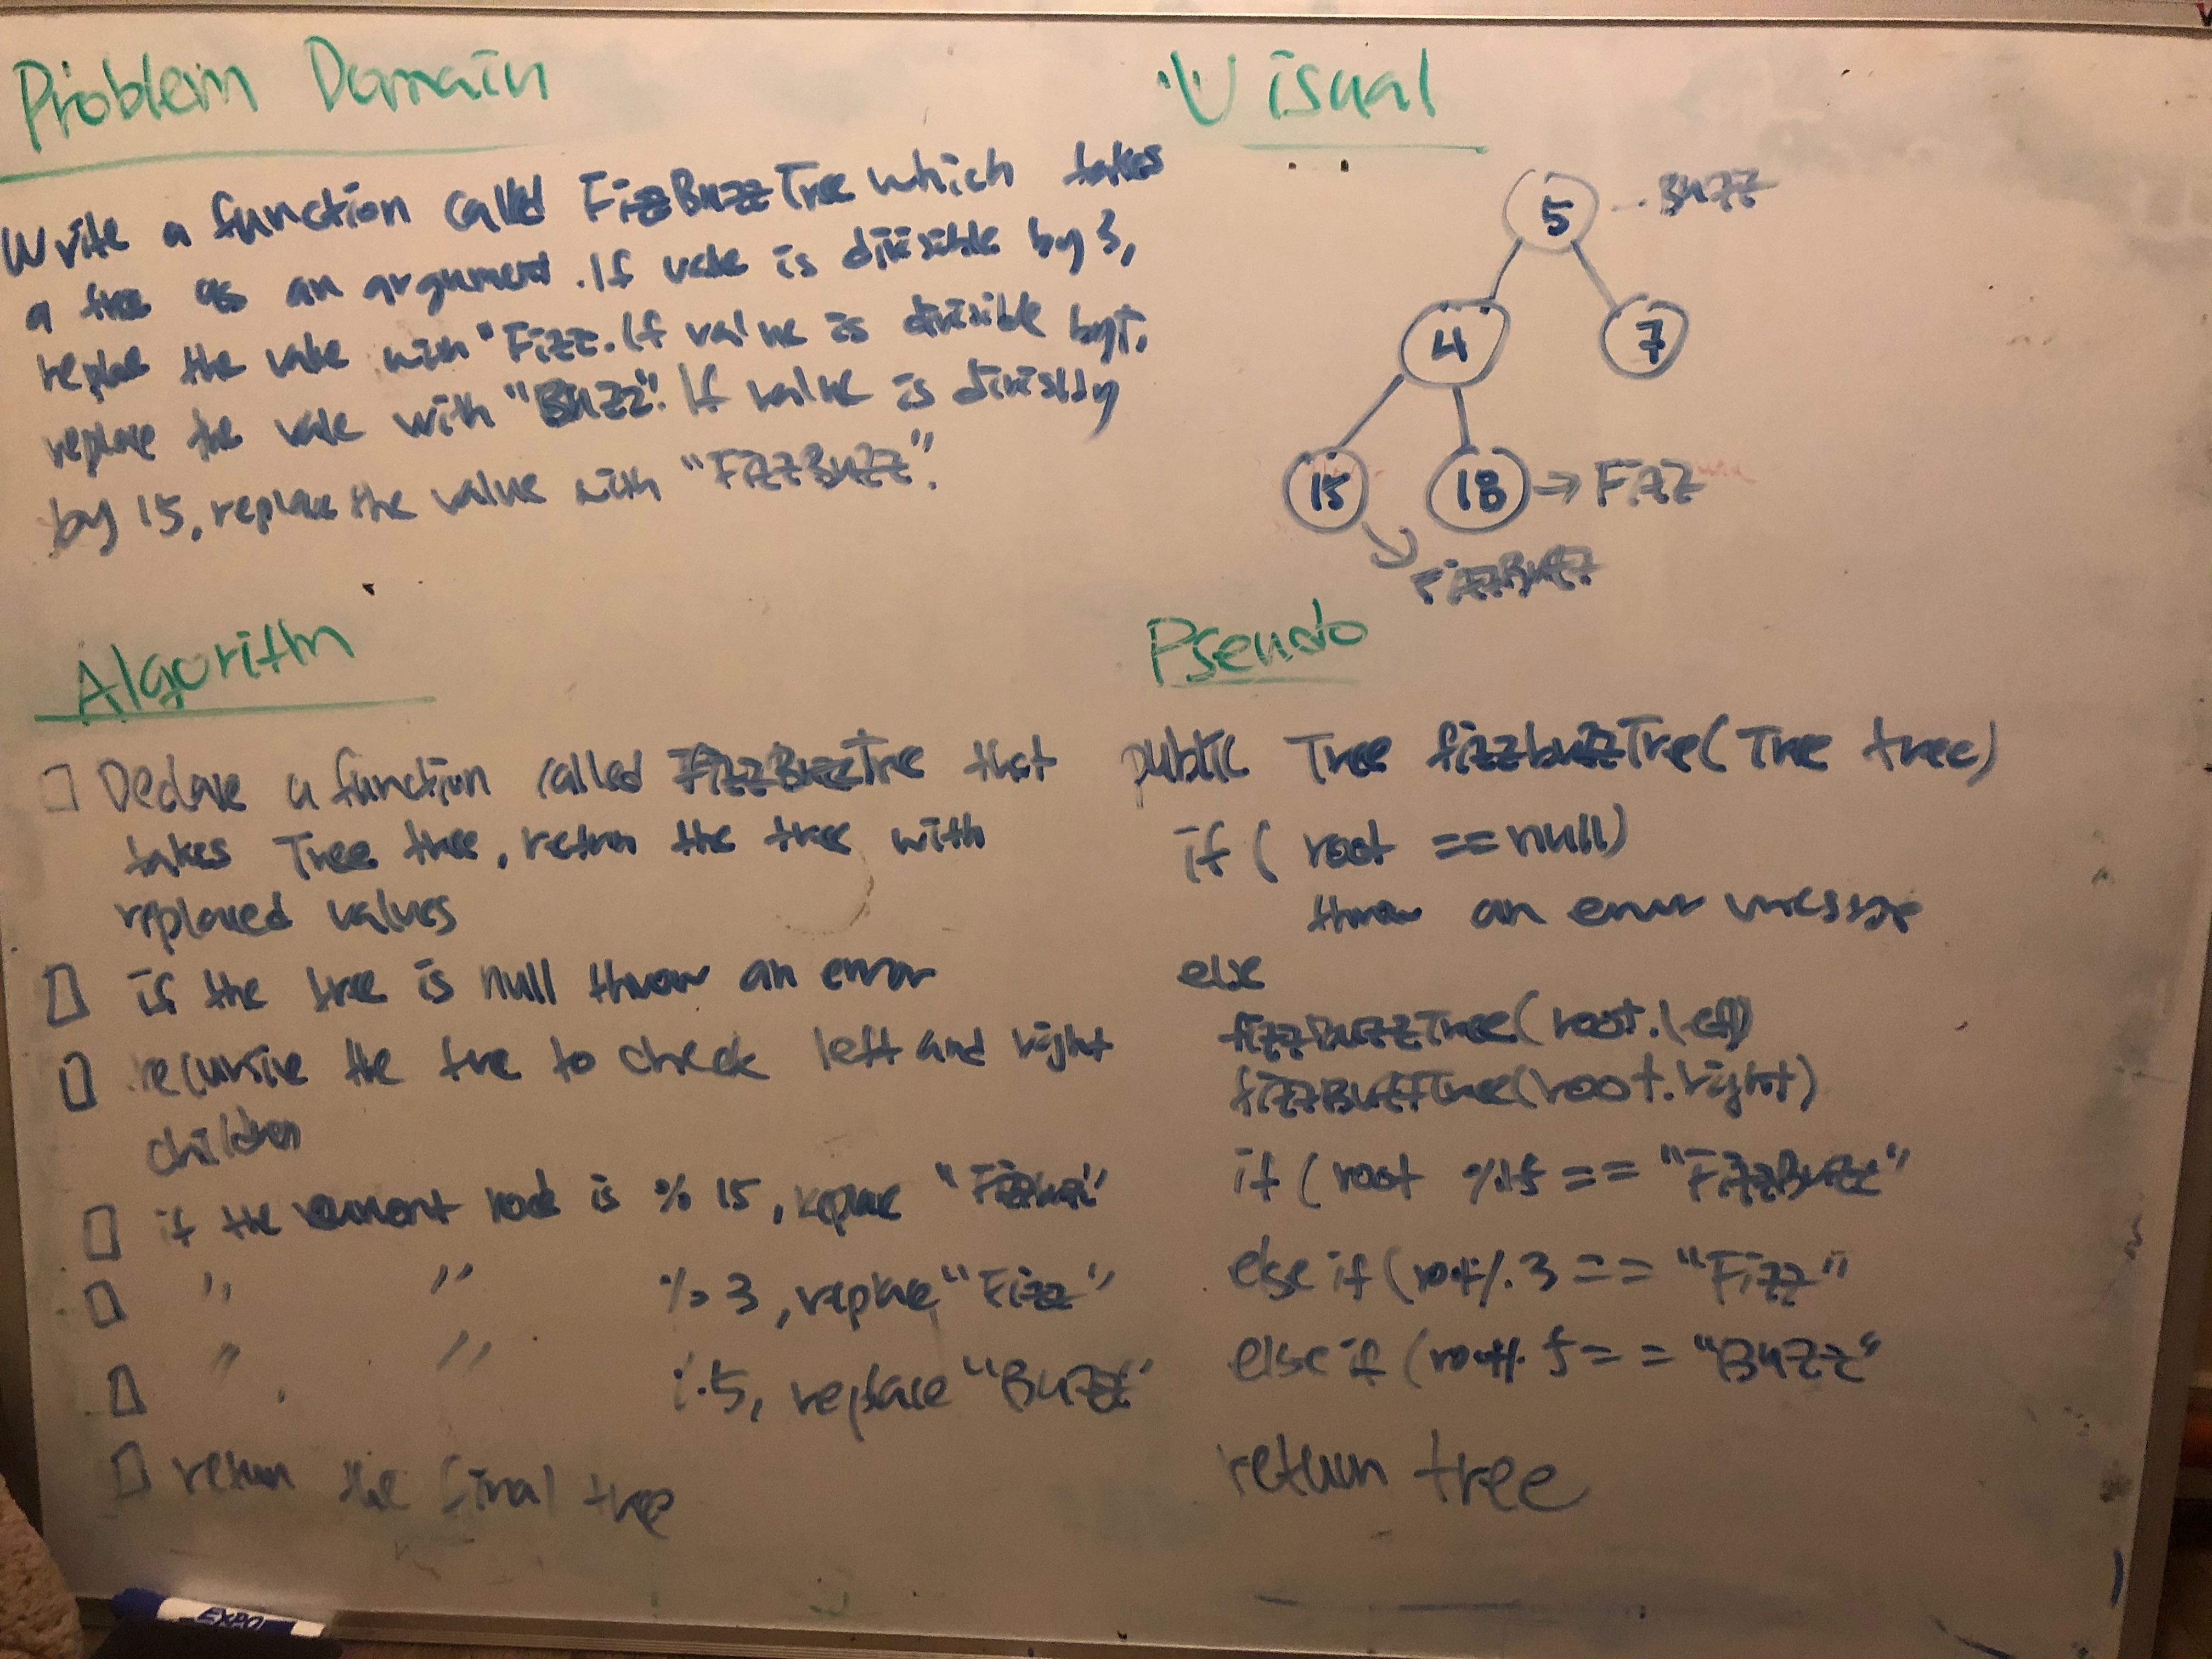 Problem Domain
Write a function called FizzBuzzTree which takes
a tree as an argument. If value is divisible by 3,
replace the value with "Fizz. If value is divisible by 5,
replace the value with "Buzz". If value is divisibly
by 15, replace the value with "FizzBuzz".
Visual
5 Buzz
4 7
15 18 → Fizz
FizzBuzz
Algorithm
Declare a function called FizzBuzzTree that
takes Tree tree, return the tree with
replaced values
if the tree is null throw an error
recursive the tree to check left and right
children
if the node is % 15, replace
" " % 3, replace "Fizz"
" " % 5, replace "Buzz"
return the final tree
Pseudo
public Tree fizzbuzzTree(Tree tree)
if ( root == null)
throw an error message
else
fizzBuzzTree(root.left)
fizzBuzzTree(root.right)
if ( root %15 == "FizzBuzz"
else if (root % 3 == "Fizz"
else if (root % 5 == "Buzz"
return tree
EXPO